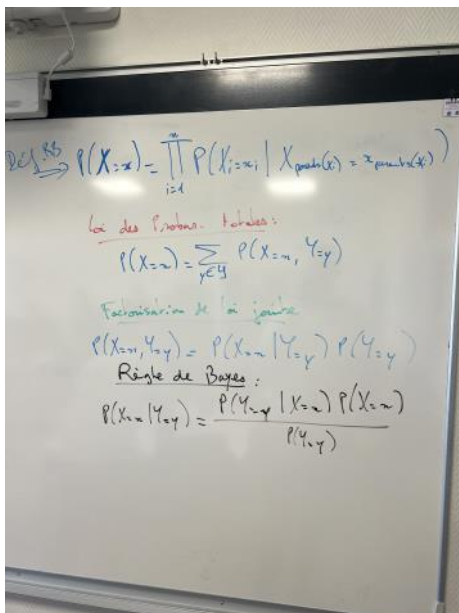 Déf RB → P(X=x) = ∏_{i=1}^{n} P(X_i=x_i | X_{parents(X_i)} = x_{parents(X_i)})
Loi des Probas. totales :
P(X=x) = ∑_{y∈𝒴} P(X=x, Y=y)
Factorisation de loi jointe
P(X=x, Y=y) = P(X=x | Y=y) P(Y=y)
Règle de Bayes :
P(X=x | Y=y) = P(Y=y | X=x) P(X=x) / P(Y=y)